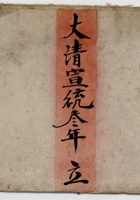 大清宣統叁年 立